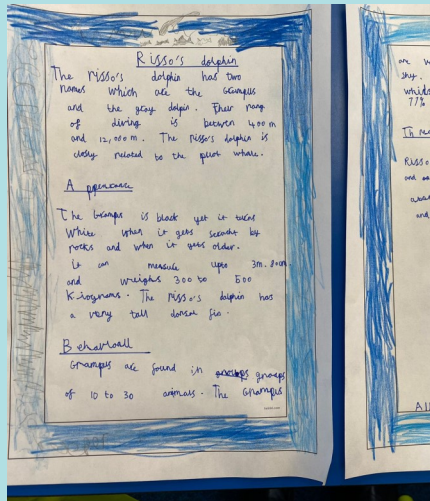 Risso's dolphin
The risso's dolphin has two
names which are the Grampus
and the gray dolpin. Their rang
of diving is between 400m
and 12,000m. The risso's dolphin is
closly related to the pilot whale.
Appearance
The Grampus is black yet it turns
White when it gets scracht by
rocks and when it gets older.
it can measure upto 3m.80cm
and weighs 300 to 500
Kilograms. The risso's dolphin has
a very tall dorsal fin.
Behavioall
Grampus are found in groups
of 10 to 30 animals. The Grampus
are
shy.
77%
Risso
and
and
All